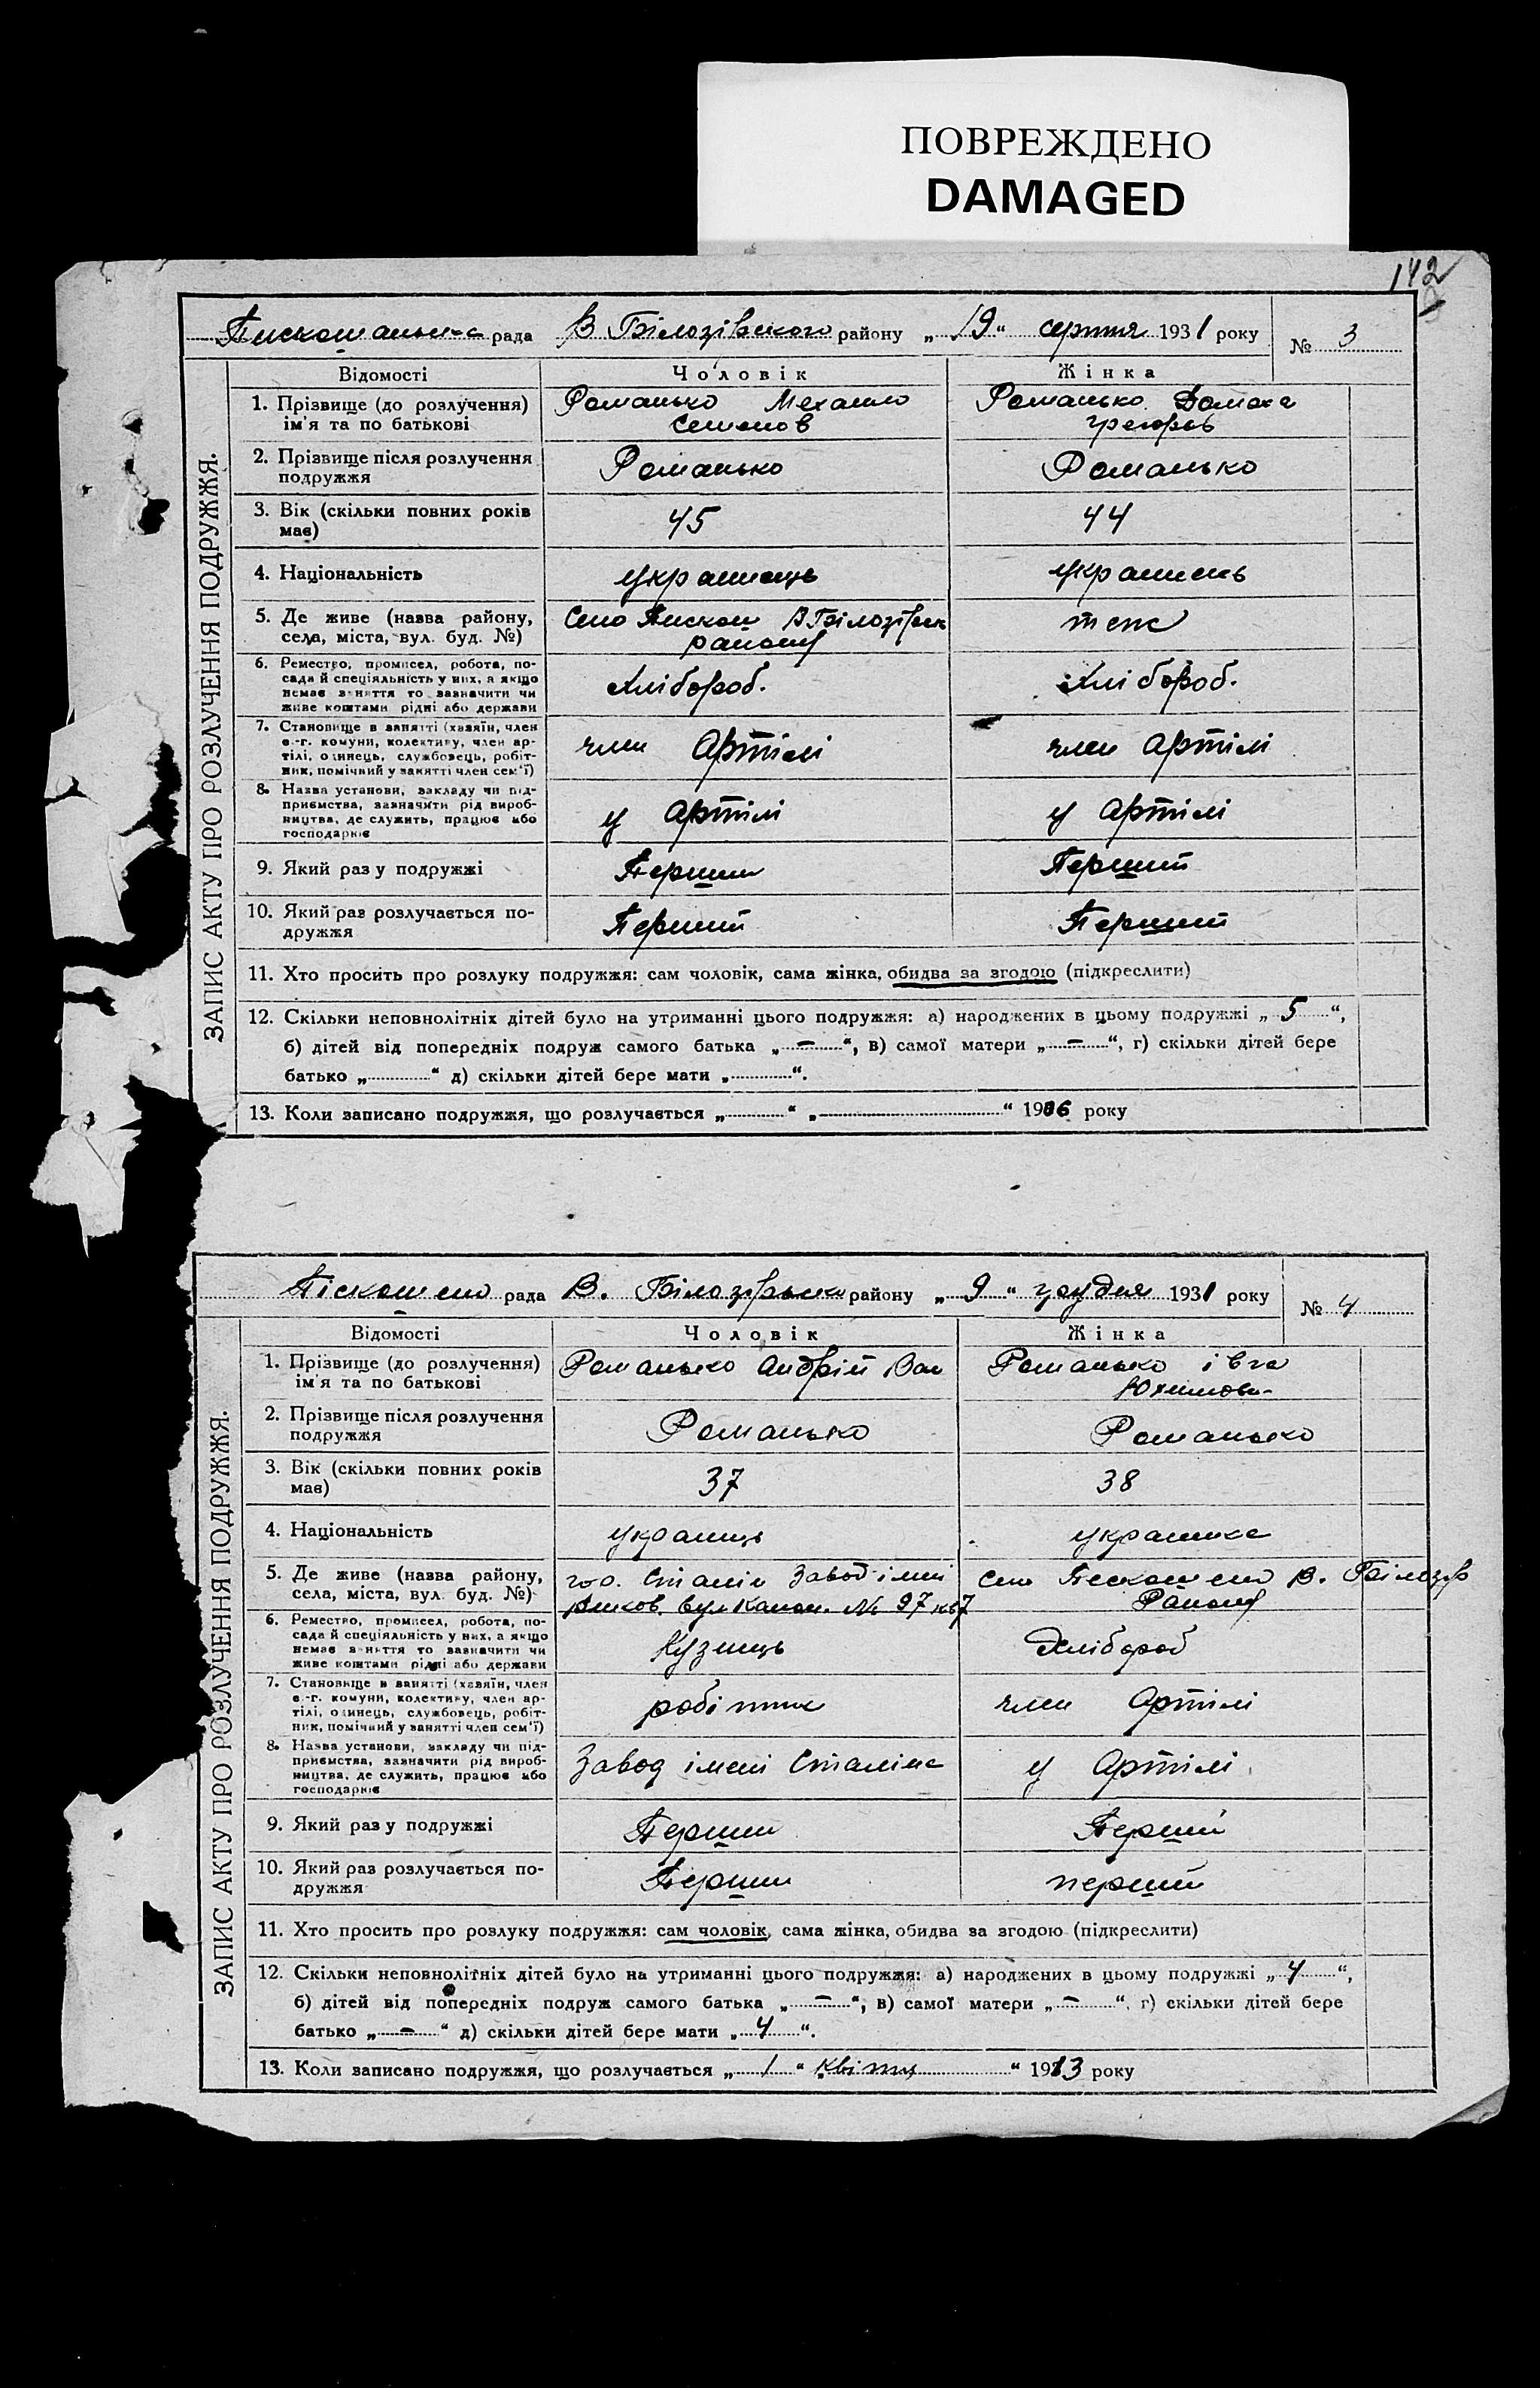 ПОВРЕЖДЕНО
DAMAGED
142
рада В Білозірського району „ 19 “ серпня 1931 року № 3
ЗАПИС АКТУ ПРО РОЗЛУЧЕННЯ ПОДРУЖЖЯ.
Відомості Чоловік Жінка
1. Прізвище (до розлучення) Романько Механло Романько Домаха
ім'я та по батькові Семенов Грегоров
2. Прізвище після розлучення Романько Романько
подружжя
3. Вік (скільки повних років 45 44
має)
4. Національність украинець украинець
5. Де живе (назва району, Село В Білозірськ теж
села, міста, вул. буд. №) району
6. Ремество, промисел, робота, по-
сада й спеціяльність у них, а якщо Хлібороб. Хлібороб.
немає заняття то зазначити чи
живе коштами рідні або держави
7. Становище в занятті (хазяїн, член
с.-г. комуни, колективу, член ар- член Артілі член Артілі
тілі, одинець, службовець, робіт-
ник, помічний у занятті член сем'ї)
8. Назва установи, закладу чи під-
приємства, зазначити рід вироб- у Артілі у Артілі
ництва, де служить, працює або
господарює
9. Який раз у подружжі Перший Перший
10. Який раз розлучається по- Перший Перший
дружжя
11. Хто просить про розлуку подружжя: сам чоловік, сама жінка, обидва за згодою (підкреслити)
12. Скільки неповнолітніх дітей було на утриманні цього подружжя: а) народжених в цьому подружжі „ 5 “,
б) дітей від попередніх подруж самого батька „ – “, в) самої матери „ – “, г) скільки дітей бере
батько „ “ д) скільки дітей бере мати „ “.
13. Коли записано подружжя, що розлучається „ “ „ “ 1906 року
Піскошено рада В. Білозірсько району „ 9 “ грудня 1931 року № 4
ЗАПИС АКТУ ПРО РОЗЛУЧЕННЯ ПОДРУЖЖЯ.
Відомості Чоловік Жінка
1. Прізвище (до розлучення) Романько Андрій Вас Романько івга
ім'я та по батькові Юхимовн
2. Прізвище після розлучення Романько Романько
подружжя
3. Вік (скільки повних років 37 38
має)
4. Національність украинць украинка
5. Де живе (назва району, Сталін Завод імені село Пескошено В. Білозір
села, міста, вул. буд. №) вул № 97 кв 7 Району
6. Ремество, промисел, робота, по-
сада й спеціяльність у них, а якщо Кузнець Хлібороб
немає заняття то зазначити чи
живе коштами рідні або держави
7. Становище в занятті (хазяїн, член
с.-г. комуни, колективу, член ар- робітник член Артілі
тілі, одинець, службовець, робіт-
ник, помічний у занятті член сем'ї)
8. Назва установи, закладу чи під-
приємства, зазначити рід вироб- Завод імені Сталіна у Артілі
ництва, де служить, працює або
господарює
9. Який раз у подружжі Перший Перший
10. Який раз розлучається по- Перший перший
дружжя
11. Хто просить про розлуку подружжя: сам чоловік, сама жінка, обидва за згодою (підкреслити)
12. Скільки неповнолітніх дітей було на утриманні цього подружжя: а) народжених в цьому подружжі „ 4 “,
б) дітей від попередніх подруж самого батька „ – “, в) самої матери „ – “, г) скільки дітей бере
батько „ – “ д) скільки дітей бере мати „ 4 “.
13. Коли записано подружжя, що розлучається „ 1 “ „ Квітня “ 1913 року